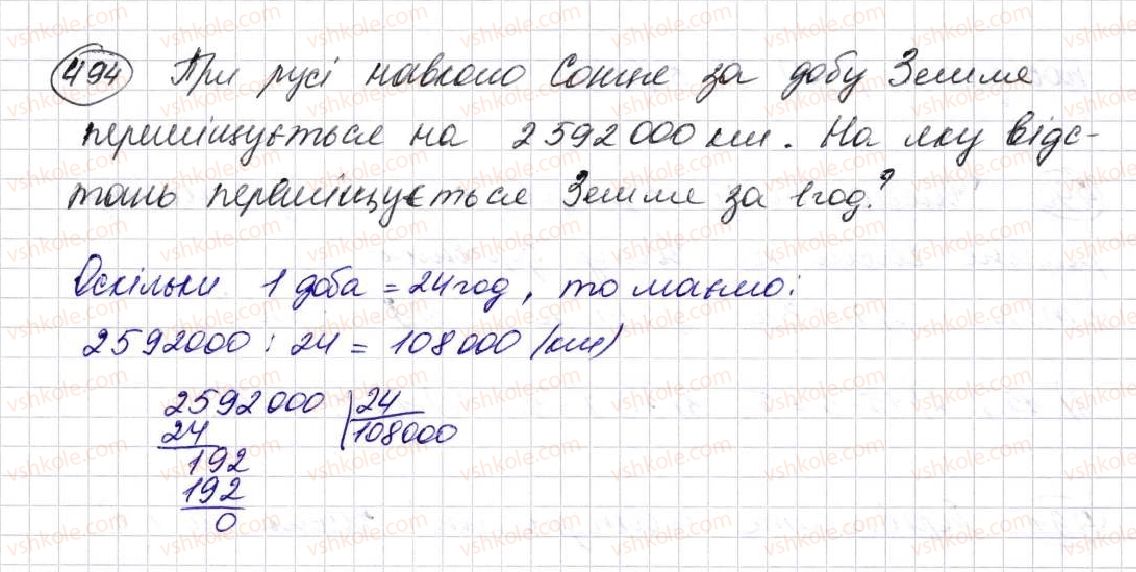 494 При русі навколо Сонце за добу Земля
переміщується на 2592000 км. На яку відс-
тань переміщується Земля за 1 год?
Оскільки 1 доба = 24 год, то маємо:
2592000 : 24 = 108000 (км)
2592000 24
24 108000
192
192
0